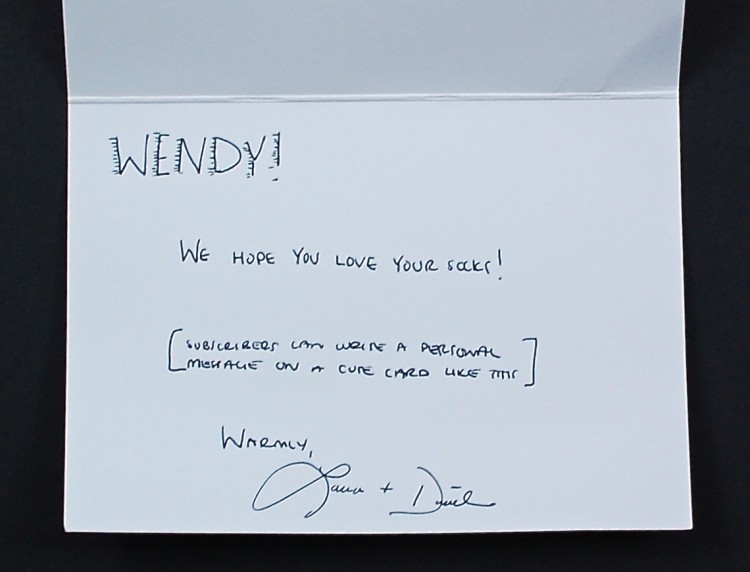 WENDY!
WE HOPE YOU LOVE YOUR SOCKS!
[SUBSCRIBERS CAN WRITE A PERSONAL
MESSAGE ON A CUTE CARD LIKE THIS]
WARMLY,
Laura + Daniel